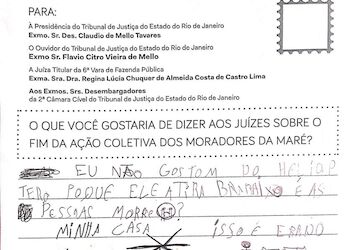 PARA:
À Presidência do Tribunal de Justiça do Estado do Rio de Janeiro
Exmo. Sr. Des. Claudio de Mello Tavares
O Ouvidor do Tribunal de Justiça do Estado do Rio de Janeiro
Exmo Sr. Flavio Citro Vieira de Mello
A Juíza Titular da 6ª Vara de Fazenda Pública
Exma. Sra. Dra. Regina Lúcia Chuquer de Almeida Costa de Castro Lima
Aos Exmos. Srs. Desembargadores
da 2ª Câmara Cível do Tribunal de Justiça do Estado do Rio de Janeiro
O QUE VOCÊ GOSTARIA DE DIZER AOS JUÍZES SOBRE O
FIM DA AÇÃO COLETIVA DOS MORADORES DA MARÉ?
EU NÃO GOSTOM DO HELICP?
TERO POQUE ELE ATIRA BARAIXO É AS
PESSOAS MORRE
MINHA CASA ISSO É ERADO